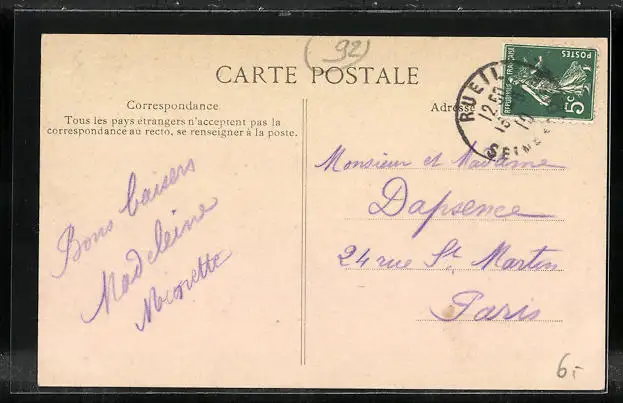 (92)
CARTE POSTALE
Correspondance
Tous les pays étrangers n'acceptent pas la
correspondance au recto, se renseigner à la poste.
Adresse
RUEIL
12 50
SEINE
REPUBLIQUE FRANÇAISE
POSTES
5c
Bons baisers
Madeleine
Monsieur et Madame
Dapsence
24 rue St Martin
Paris
6.-